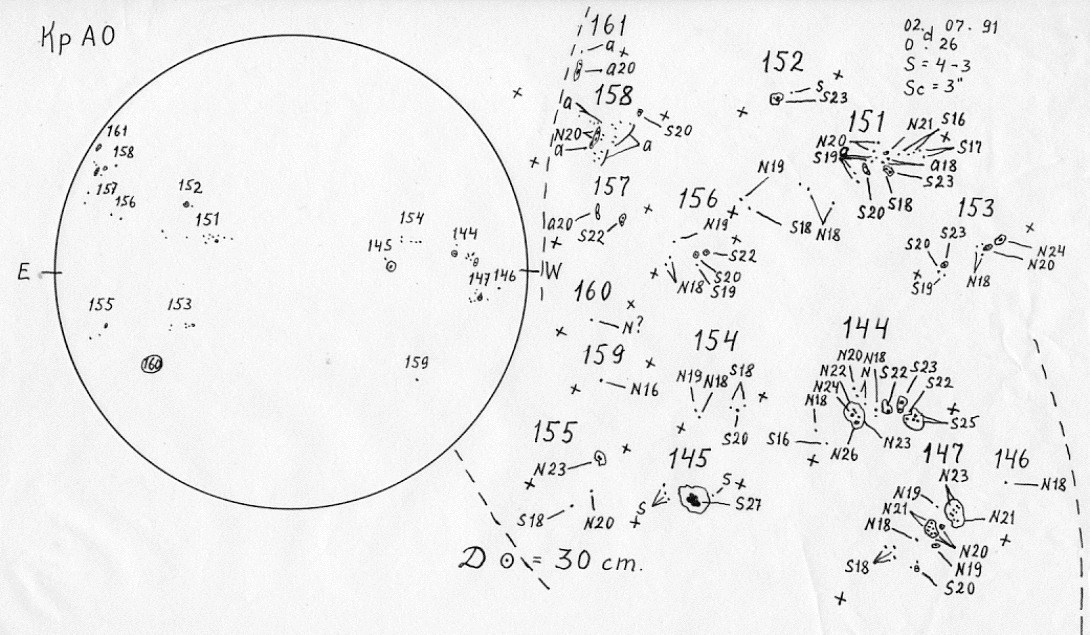 Kp AO
02.d 07.91
0.26
S = 4-3
Sc = 3"
E
W
161
158
157
156
152
151
154
145
144
147
146
155
153
160
159
161
a
a20
158
a
N20
a
a
S20
157
a20
S22
156
N19
S22
S20
N18 S19
152
S
S23
151
N21 S16
N20
S19
S17
a18
S23
S20 S18
N19
S18 N18
153
S23
S20
S19
N18
N24
N20
160
N?
159
N16
154
N19 N18 S18
S20
144
N20 N18
N22 N S22 S23
N24 S22
N18
S25
S16
N26
N23
155
N23
S18
N20
145
S
S
S27
147
N23
N19
N21
N18
N21
N20
N19
S18
S20
146
N18
D ⊙ = 30 cm.